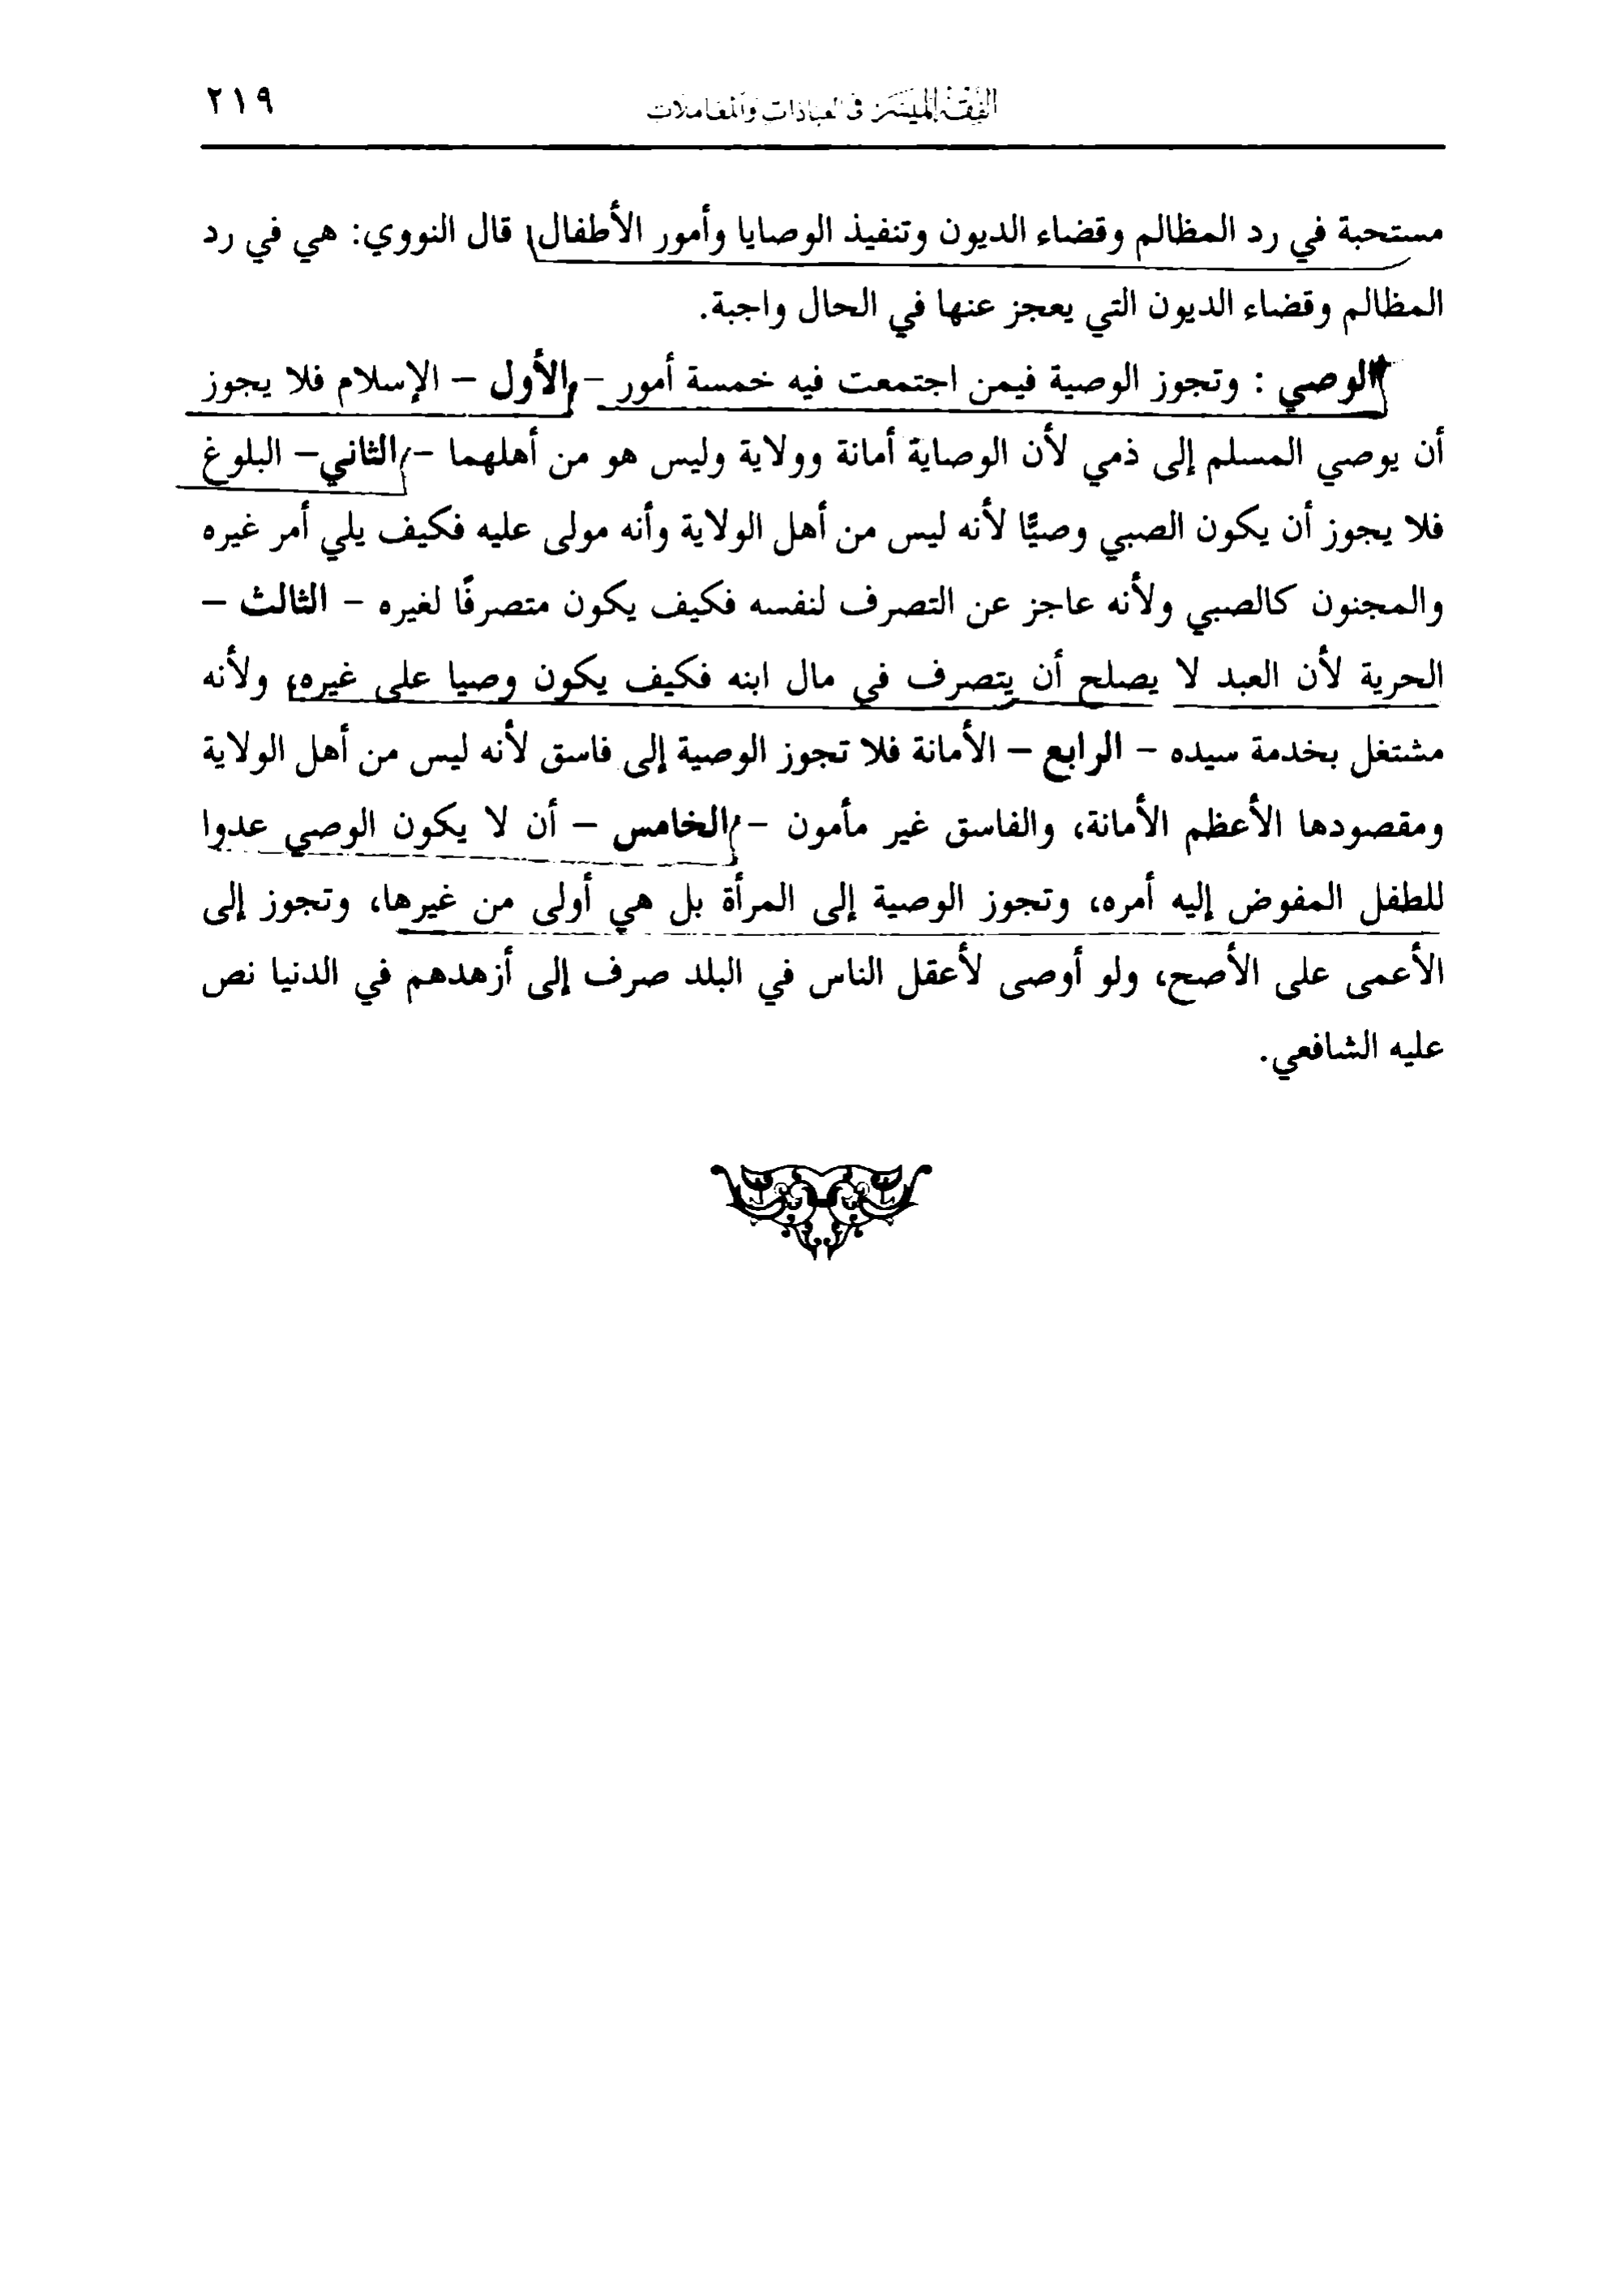 الفقه الميسر في العبادات والمعاملات ٢١٩
مستحبة في رد المظالم وقضاء الديون وتنفيذ الوصايا وأمور الأطفال قال النووي: هي في رد
المظالم وقضاء الديون التي يعجز عنها في الحال واجبة.
الوصي : وتجوز الوصية فيمن اجتمعت فيه خمسة أمور – الأول – الإسلام فلا يجوز
أن يوصي المسلم إلى ذمي لأن الوصاية أمانة وولاية وليس هو من أهلهما – الثاني – البلوغ
فلا يجوز أن يكون الصبي وصيًّا لأنه ليس من أهل الولاية وأنه مولى عليه فكيف يلي أمر غيره
والمجنون كالصبي ولأنه عاجز عن التصرف لنفسه فكيف يكون متصرفًا لغيره – الثالث –
الحرية لأن العبد لا يصلح أن يتصرف في مال ابنه فكيف يكون وصيا على غيره، ولأنه
مشتغل بخدمة سيده – الرابع – الأمانة فلا تجوز الوصية إلى فاسق لأنه ليس من أهل الولاية
ومقصودها الأعظم الأمانة، والفاسق غير مأمون – الخامس – أن لا يكون الوصي عدوا
للطفل المفوض إليه أمره، وتجوز الوصية إلى المرأة بل هي أولى من غيرها، وتجوز إلى
الأعمى على الأصح، ولو أوصى لأعقل الناس في البلد صرف إلى أزهدهم في الدنيا نص
عليه الشافعي.